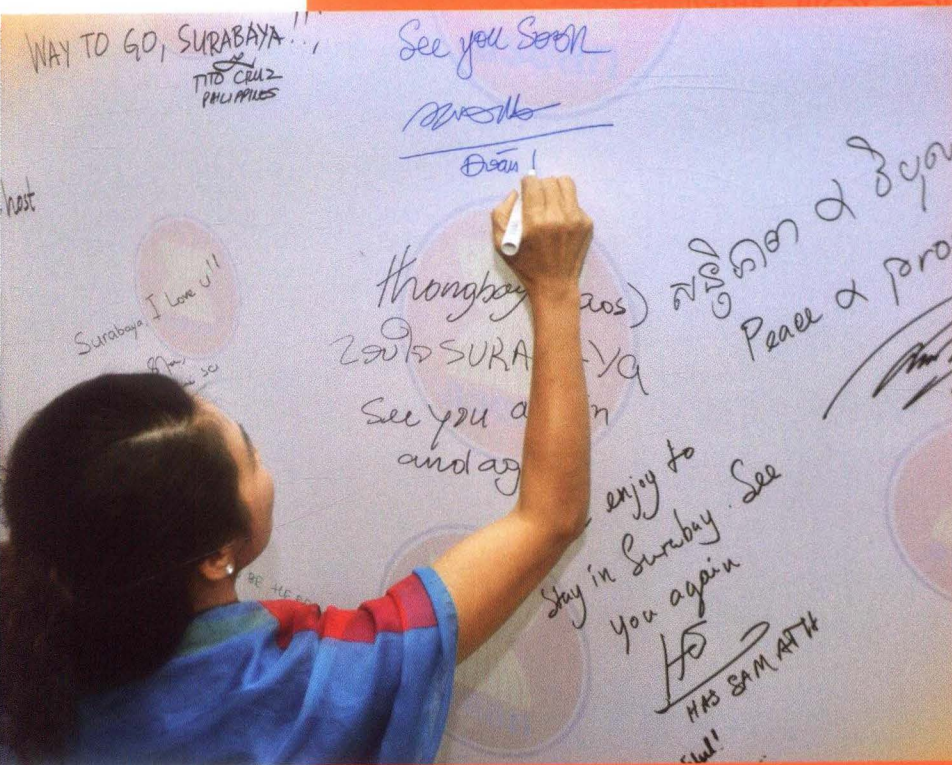 WAY TO GO, SURABAYA!!,
TITO CRUZ
PHILIPPINES
See you Soon
host
Surabaya, I Love u!!
so
thongbay aos)
ຂອບໃຈ SURA YA
See you a n
and ag
សន្តិភាព & វិបុល
Peace & pro
enjoy to
stay in Surabay. See
you again
HAS SAMATH
BE